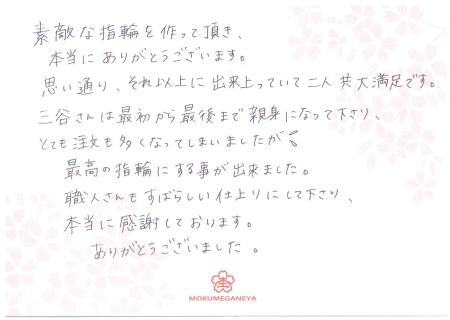 素敵な指輪を作って頂き、
本当にありがとうございます。
思い通り、それ以上に出来上っていて二人共大満足です。
三谷さんは最初から最後まで親身になって下さり、
とても注文も多くなってしまいましたが
最高の指輪にする事が出来ました。
職人さんもすばらしい仕上りにして下さり、
本当に感謝しております。
ありがとうございました。
MOKUMEGANEYA